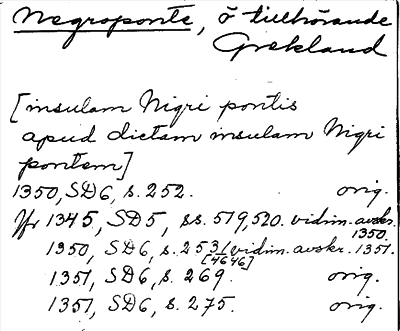 Negroponte, ö tillhörande
Grekland
[insulam Nigri pontis
apud dictam insulam Nigri
pontem]
1350, SD6, s. 252. orig.
Jfr 1345, SD5, ss. 519, 520. vidim. avskr. 1350.
1350, SD6, s. 253 [4646] (vidim. avskr. 1351.
1351, SD6, s. 269. orig.
1351, SD6, s. 275. orig.